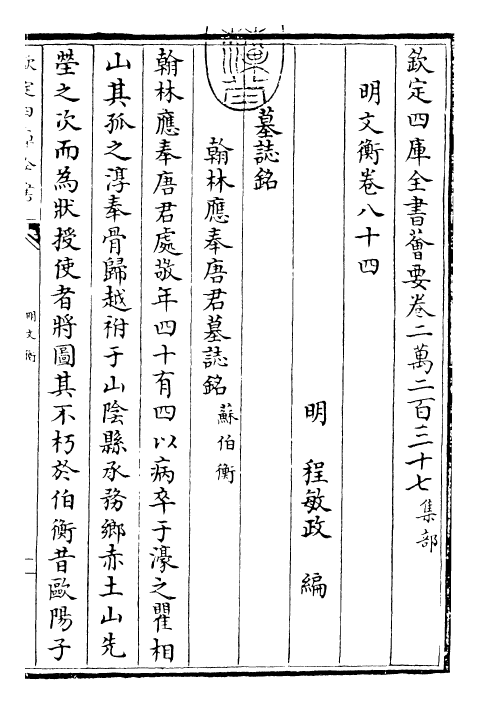 欽定四庫全書薈要卷二萬二百三十七集部
明文衡卷八十四
明 程敏政 編
墓誌銘
翰林應奉唐君墓誌銘 蘇伯衡
翰林應奉唐君處敬年四十有四以病卒于濠之瞿相
山其孤之淳奉骨歸越祔于山陰縣承務鄉赤土山先
塋之次而為狀授使者將圖其不朽於伯衡昔歐陽子
欽定四庫全書
明文衡
一